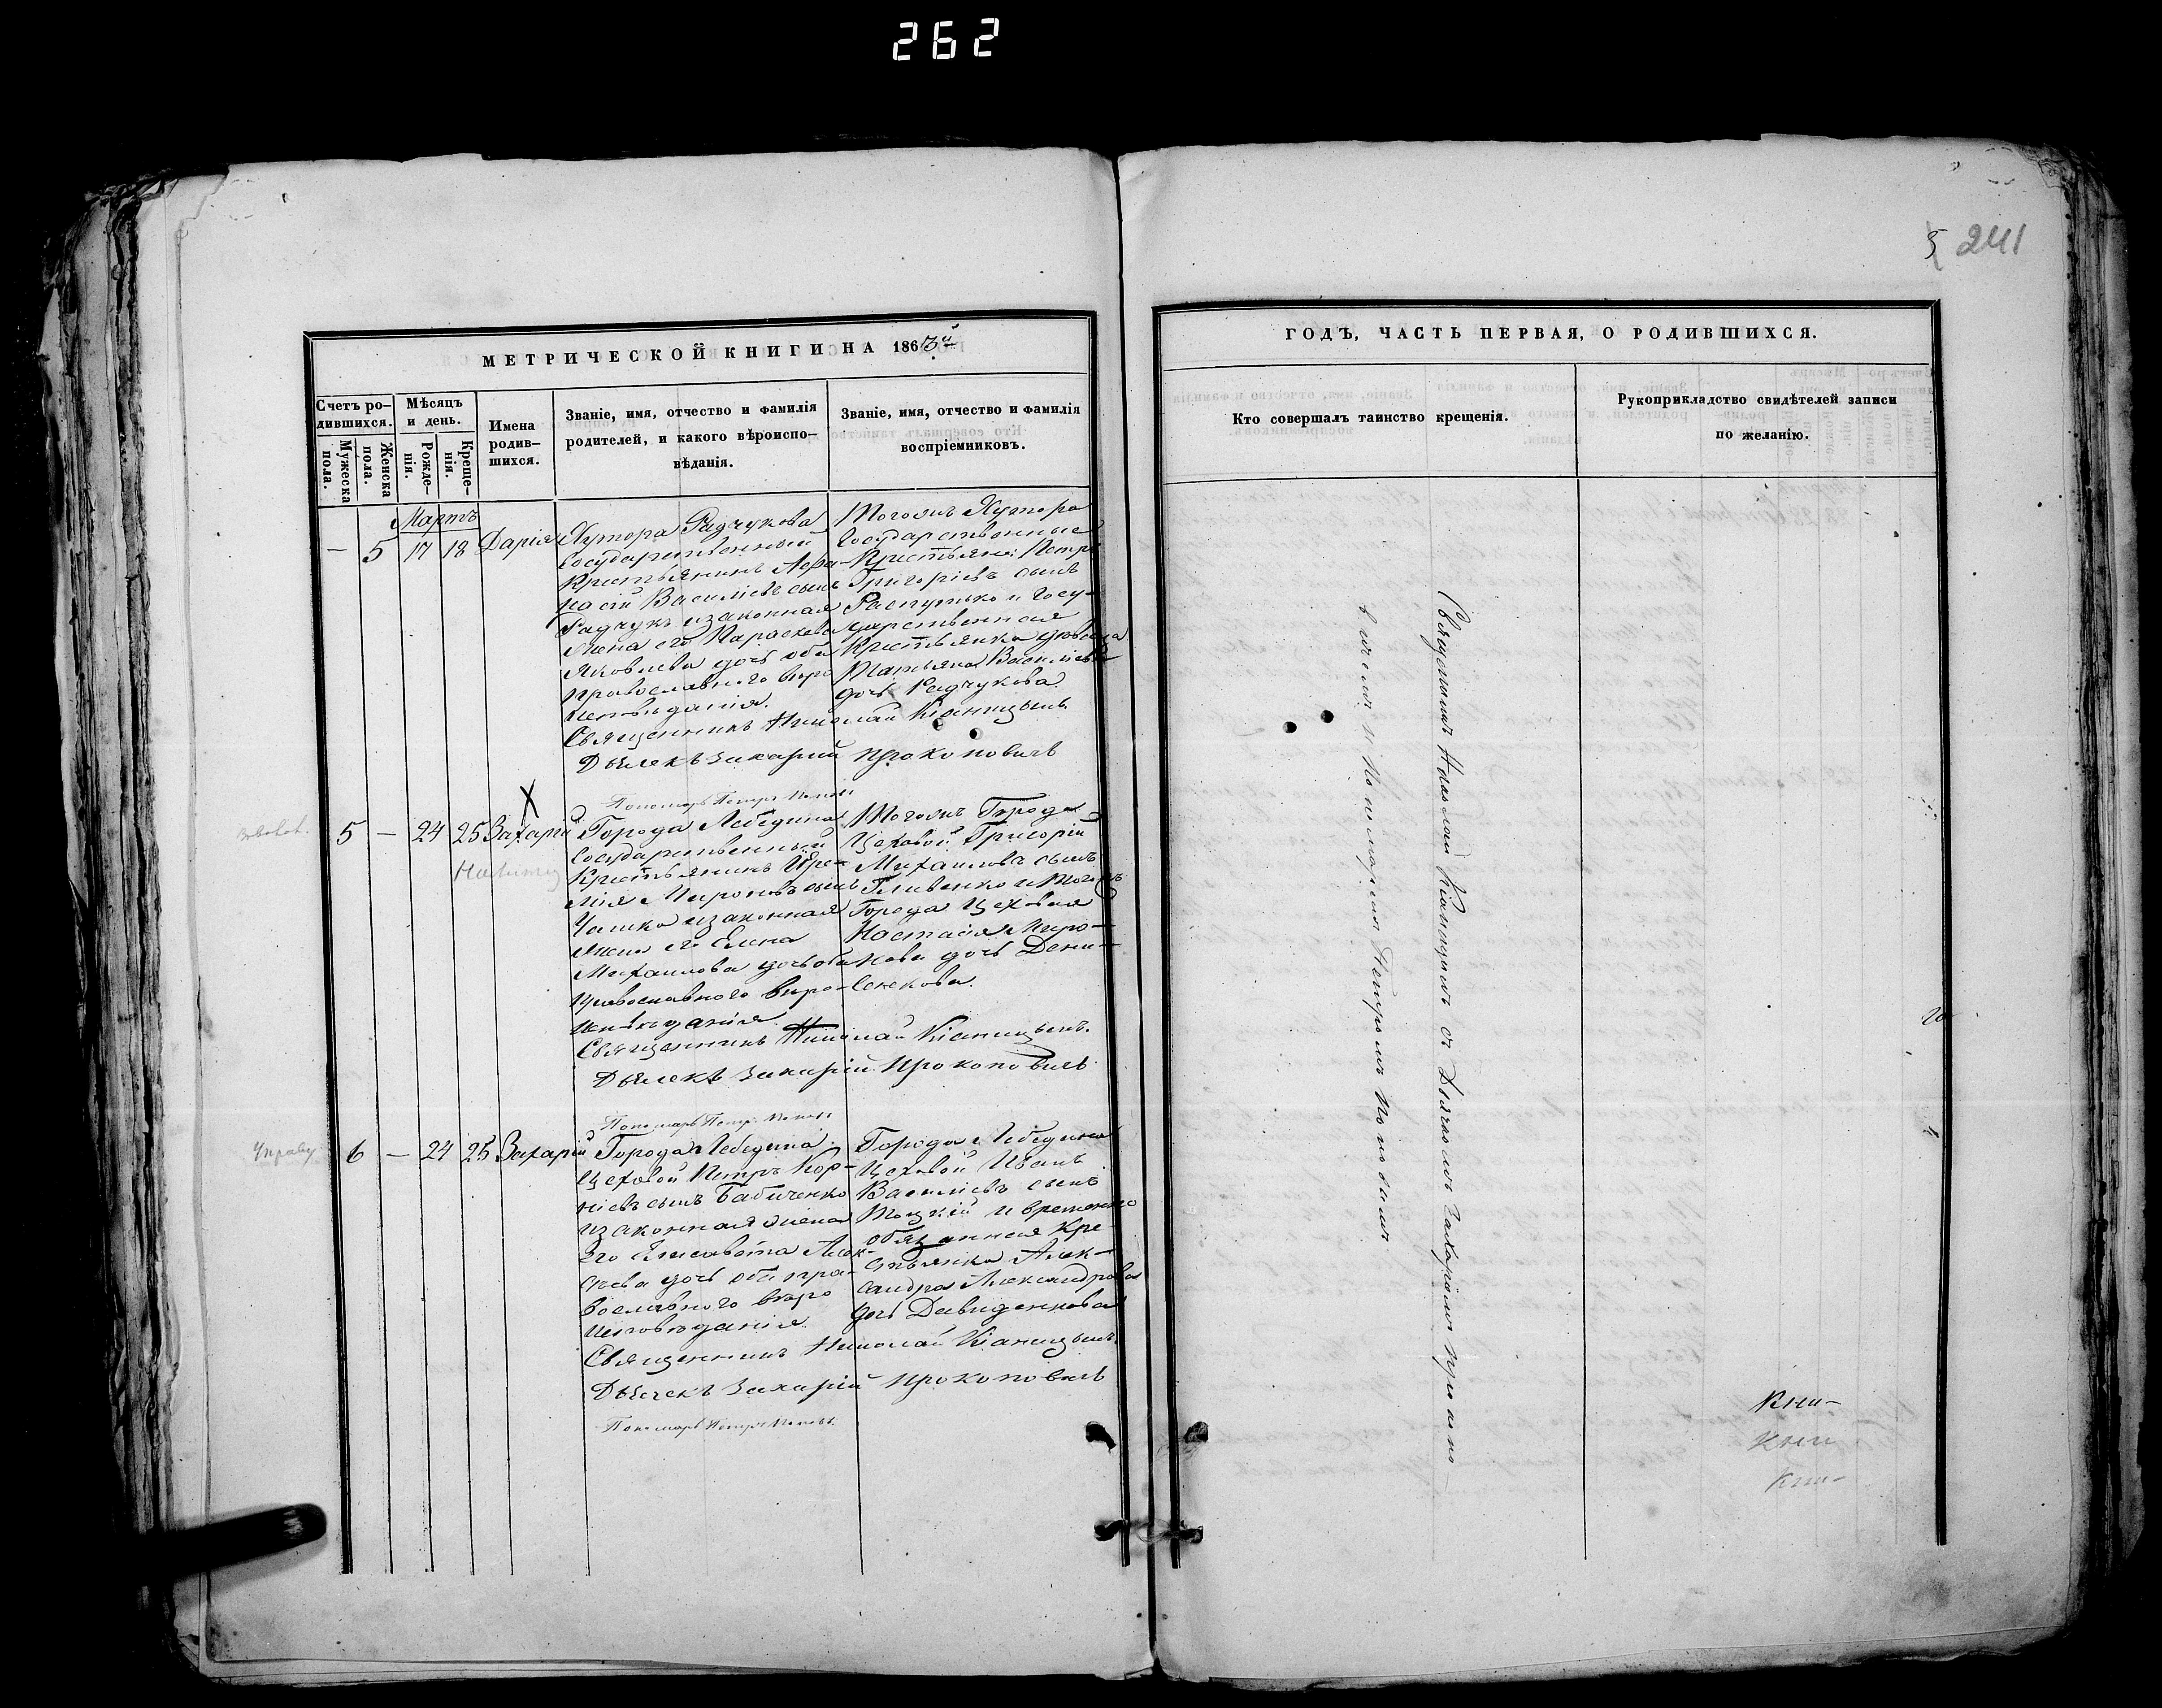 262
5 241
МЕТРИЧЕСКОЙ КНИГИ НА 1863й
ГОДЪ, ЧАСТЬ ПЕРВАЯ, О РОДИВШИХСЯ.
Счетъ ро-
дившихся.
Мужеска
пола.
Женска
пола.
Мѣсяцъ
и день.
Рожде-
нія.
Креще-
нія.
Имена
родив-
шихся.
Званіе, имя, отчество и фамилія
родителей, и какого вѣроиспо-
вѣданія.
Званіе, имя, отчество и фамилія
воспріемниковъ.
Кто совершалъ таинство крещенія.
Рукоприкладство свидѣтелей записи
по желанію.
Мартъ
— 5 17 18 Дарія
Хутора Радчукова
Государственный
Крестьянинъ Афа-
насій Василіевъ сынъ
Радчукъ и законная
жена его Параскева
Яковлева дочь оба
православнаго вѣро
исповѣданія.
Тогожъ Хутора
Государственные
Крестьяне: Петръ
Григоріевъ сынъ
Распутько и Госу-
дарственная
Крестьянка
Татьяна Василіева
дочь Радчукова.
Священникъ Николай Кіаницынъ
Дьячекъ Захарій Прокоповичъ
Пономарь Петръ
5 — 24 25 Захарій
Города Лебедина
Государственный
Крестьянинъ Іере-
мія Мироновъ сынъ
и законная
жена его Елена
Михаилова дочь оба
православнаго вѣро-
исповѣданія
Тогожъ Города
Цеховой Григорій
Михаиловъ сынъ
и тогожъ
Города Цеховая
Настасія Миро-
нова дочь Дени-
сенкова.
Священникъ Николай Кіаницынъ.
Дьячекъ Захарій Прокоповичъ
Пономарь Петръ
6 — 24 25 Захарій
Города Лебедина
Цеховой Петръ Кор-
ніевъ сынъ Бабиченко
и законная жена
его Елисавета Алек-
сѣева дочь оба пра-
вославнаго вѣро
исповѣданія.
Города Лебедина
Цеховой Иванъ
Василіевъ сынъ
Тоцкій и временно
обязанная Кре-
стьянка Алек-
сандра Александрова
дочь Давиденкова
Священникъ Николай Кіаницынъ.
Дьячекъ Захарій Прокоповичъ
Пономарь Петръ
Священникъ Николай Кіаницынъ съ Дьячкомъ Захаріемъ Прокопо
вичемъ и Пономаремъ Петромъ Поповымъ
Кни-
Кни
Кни-